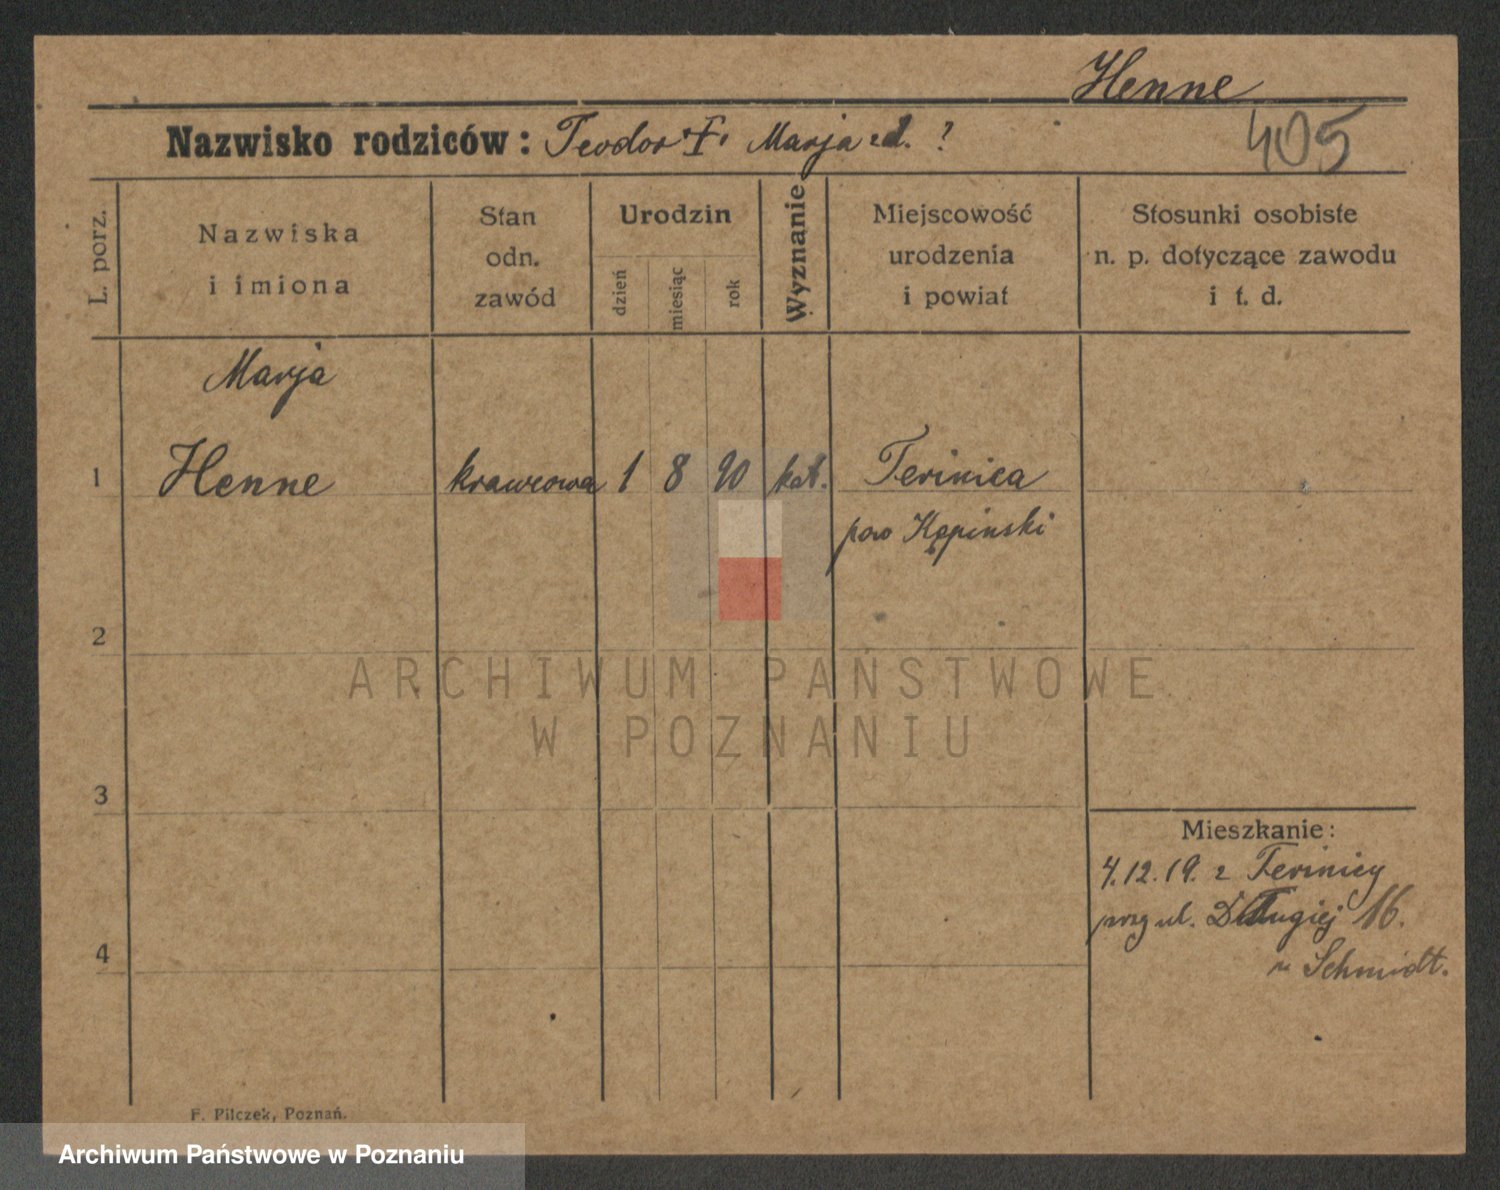 Henne
Nazwisko rodziców: Teodor Marja ?
405
L. porz.
Nazwiska
i imiona
Stan
odn.
zawód
Urodzin
dzień
miesiąc
rok
Wyznanie
Miejscowość
urodzenia
i powiat
Stosunki osobiste
n. p. dotyczące zawodu
i t. d.
Marja
1 Henne krawcowa 1 8 90 kat.
pow Kępinski
2
ARCHIWUM PAŃSTWOWE
W POZNANIU
3
Mieszkanie:
4.12.19. z
ul. Długiej 16.
4
Schmidt.
F. Pilczek, Poznań.
Archiwum Państwowe w Poznaniu